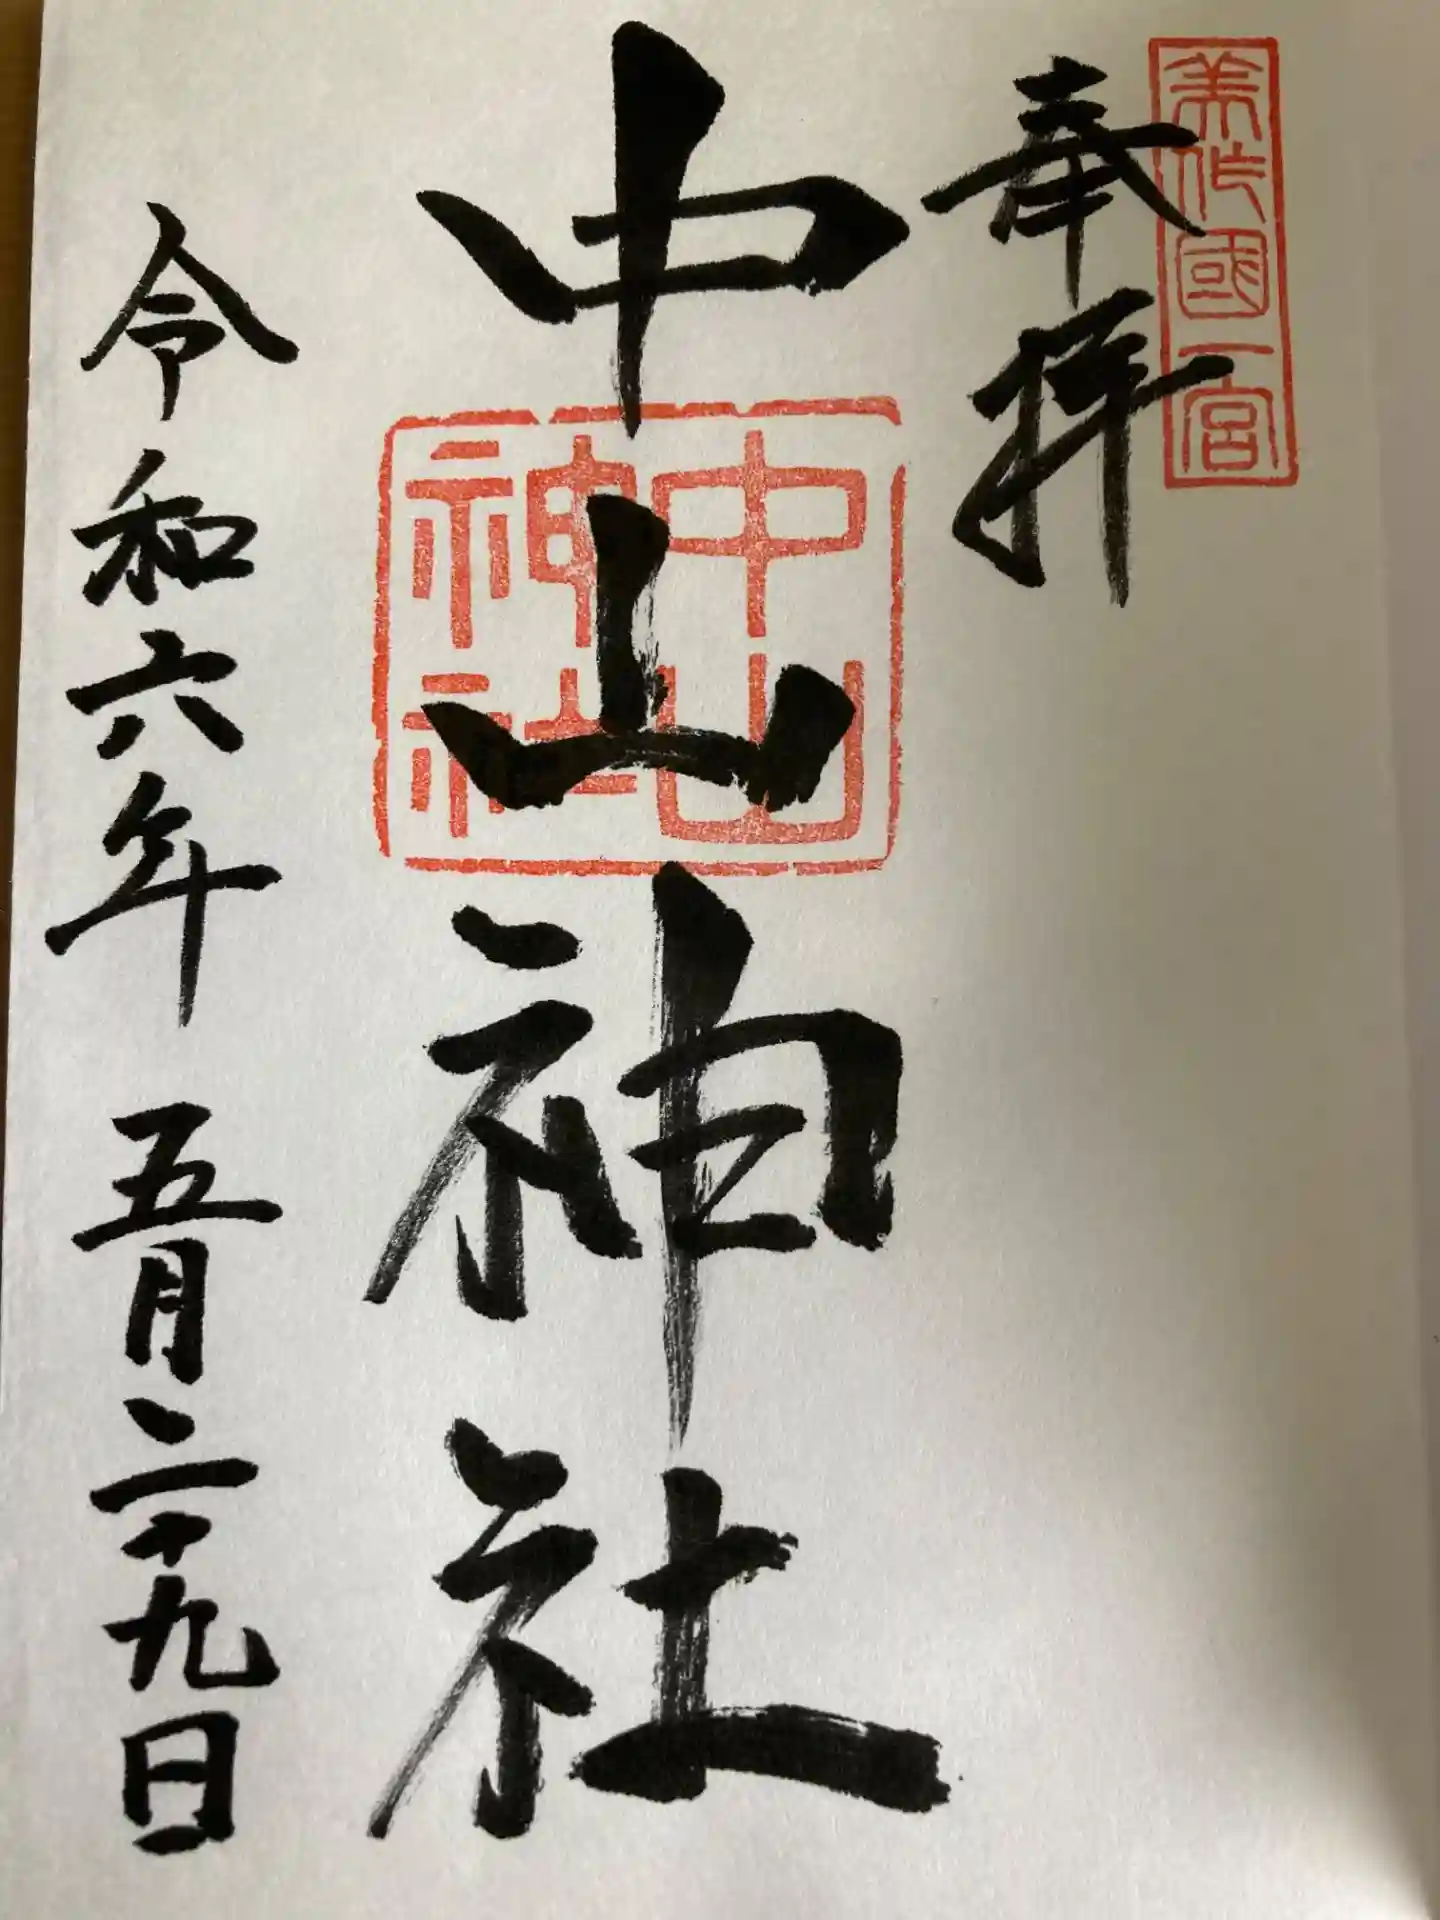 美作國一宮
奉拝
中山神社
中山
神社
令和六年五月二十九日